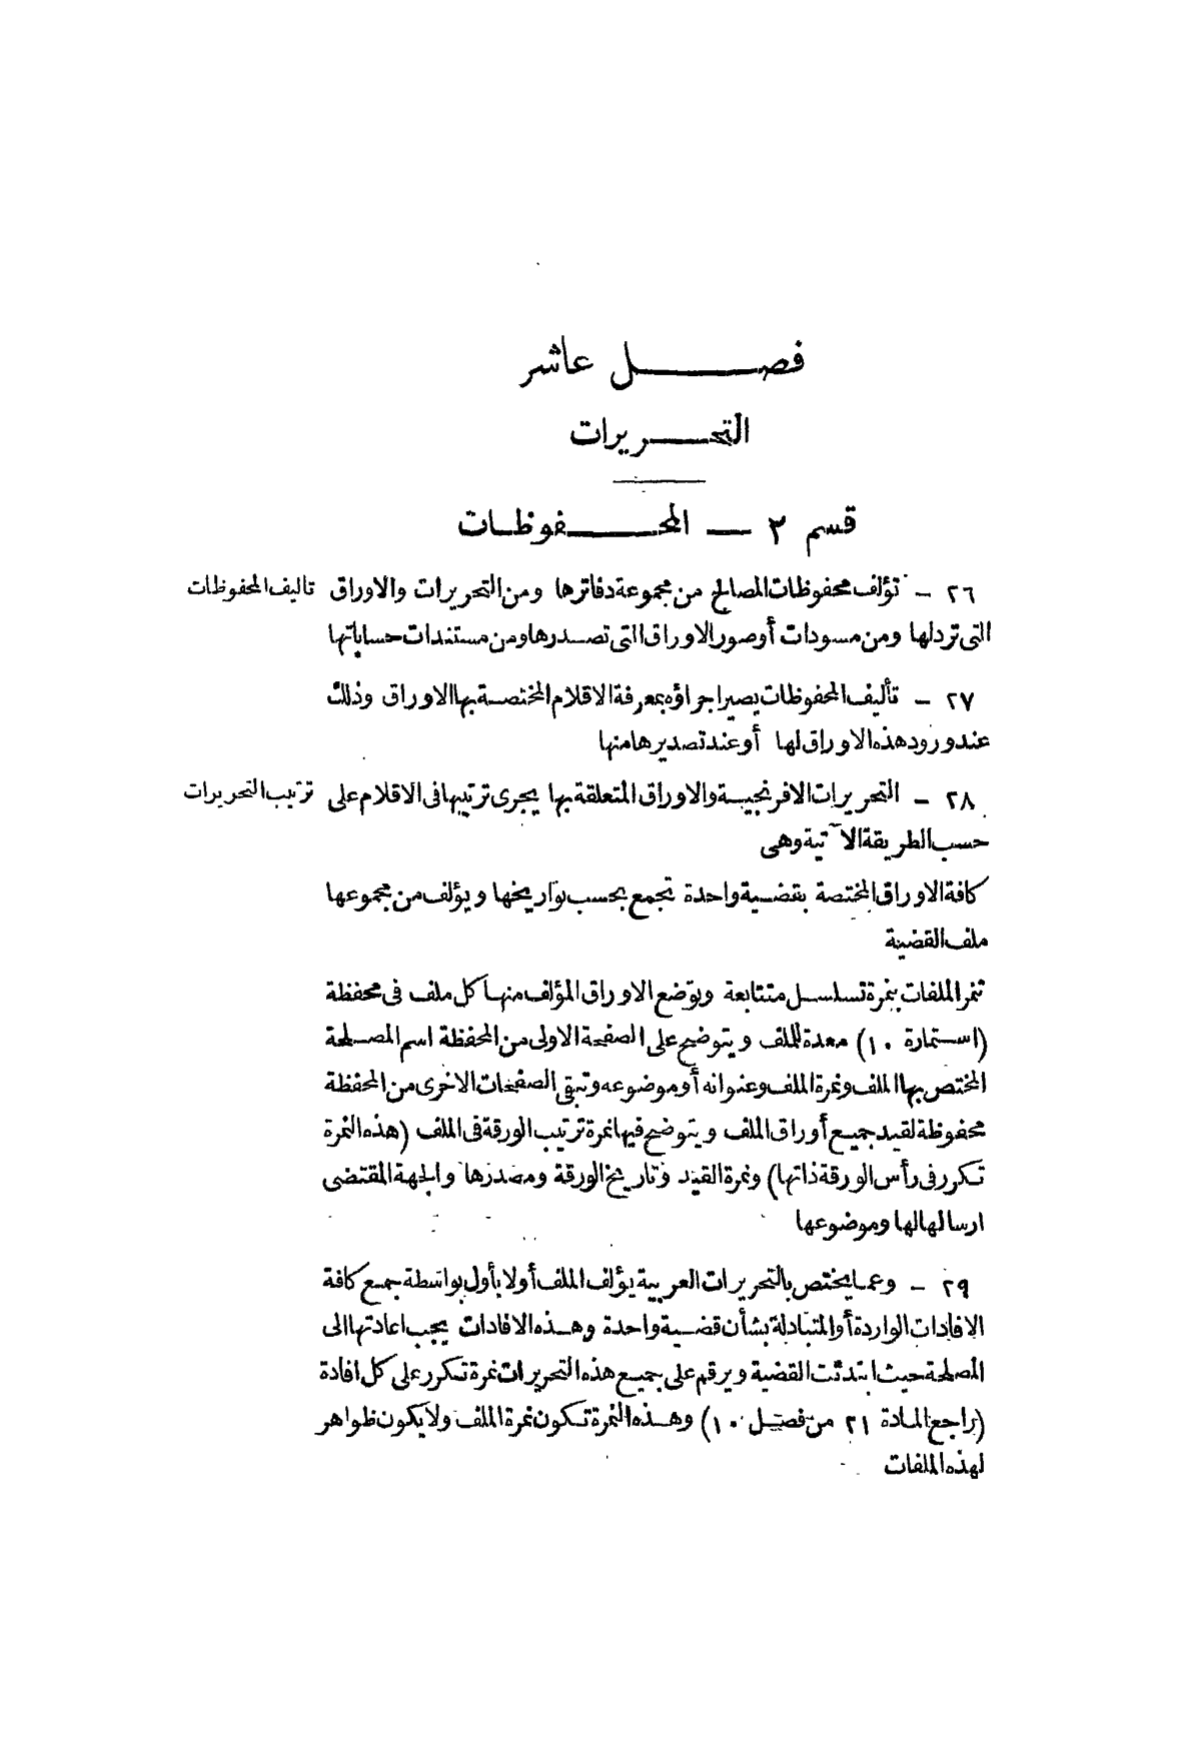 فصل عاشر
التحريرات
قسم ٢ — المحفوظات
٢٦ - تؤلف محفوظات المصالح من مجموعة دفاترها ومن التحريرات والاوراق تاليف المحفوظات
التى تردلها ومن مسودات أوصور الاوراق التى تصدرها ومن مستندات حساباتها
٢٧ - تأليف المحفوظات يصير اجراؤه بمعرفة الاقلام المختصة بها الاوراق وذلك
عند ورود هذه الاوراق لها أو عند تصديرها منها
٢٨ - التحريرات الافرنجية والاوراق المتعلقة بها يجرى ترتيبها فى الاقلام على ترتيب التحريرات
حسب الطريقة الآتية وهى
كافة الاوراق المختصة بقضية واحدة تجمع بحسب تواريخها ويؤلف من مجموعها
ملف القضية
تنمر الملفات بنمرة تسلسل متتابعة وتوضع الاوراق المؤلف منها كل ملف فى محفظة
(استمارة ١٠) معدة للملف ويتوضح على الصفحة الاولى من المحفظة اسم المصلحة
المختص بها الملف ونمرة الملف وعنوانه أو موضوعه وتبقى الصفحات الاخرى من المحفظة
محفوظة لقيد جميع أوراق الملف ويتوضح فيها نمرة ترتيب الورقة فى الملف (هذه النمرة
تكرر فى رأس الورقة ذاتها) ونمرة القيد وتاريخ الورقة ومصدرها والجهة المقتضى
ارسالها لها وموضوعها
٢٩ - وعما يختص بالتحريرات العربية يؤلف الملف أولا بأول بواسطة جمع كافة
الافادات الواردة أو المتبادلة بشأن قضية واحدة وهذه الافادات يجب اعادتها الى
المصلحة حيث ابتدئت القضية ويرقم على جميع هذه التحريرات نمرة تكرر على كل افادة
(راجع المادة ٢١ من فصل ١٠) وهذه النمرة تكون نمرة الملف ولا يكون ظواهر
لهذه الملفات